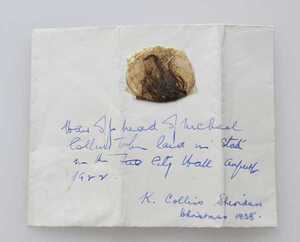 Hair of head of Michael
Collins when laid in State
in the City Hall August
1922.
K. Collins Sheridan
Christmas 1938.